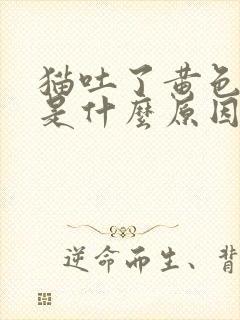 猫吐了黄色
是什麼原因
逆命而生、背